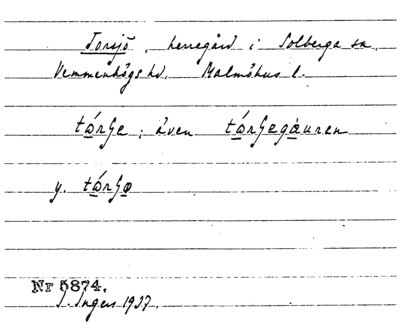 Torsjö, herregård i Solberga sn,
Vemmenhögs hd, Malmöhus l.
tórʃe; även tórʃegåuren
y. tórʃø
Nr 5874.
I. Ingers 1937.